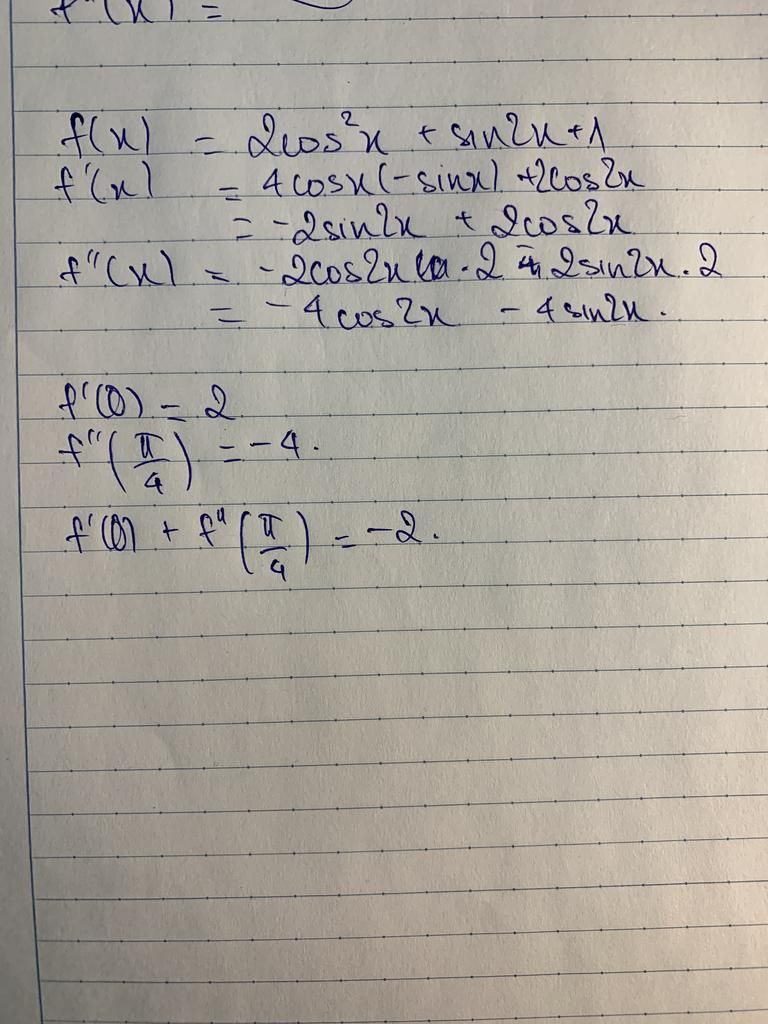 f''(x) =
f(x) = 2cos²x + sin2x + 1
f'(x) = 4cosx(-sinx) + 2cos2x
= -2sin2x + 2cos2x
f''(x) = -2cos2x · 2 - 2sin2x . 2
= -4cos2x - 4sin2x.
f'(0) = 2
f''(π/4) = -4.
f'(0) + f''(π/4) = -2.